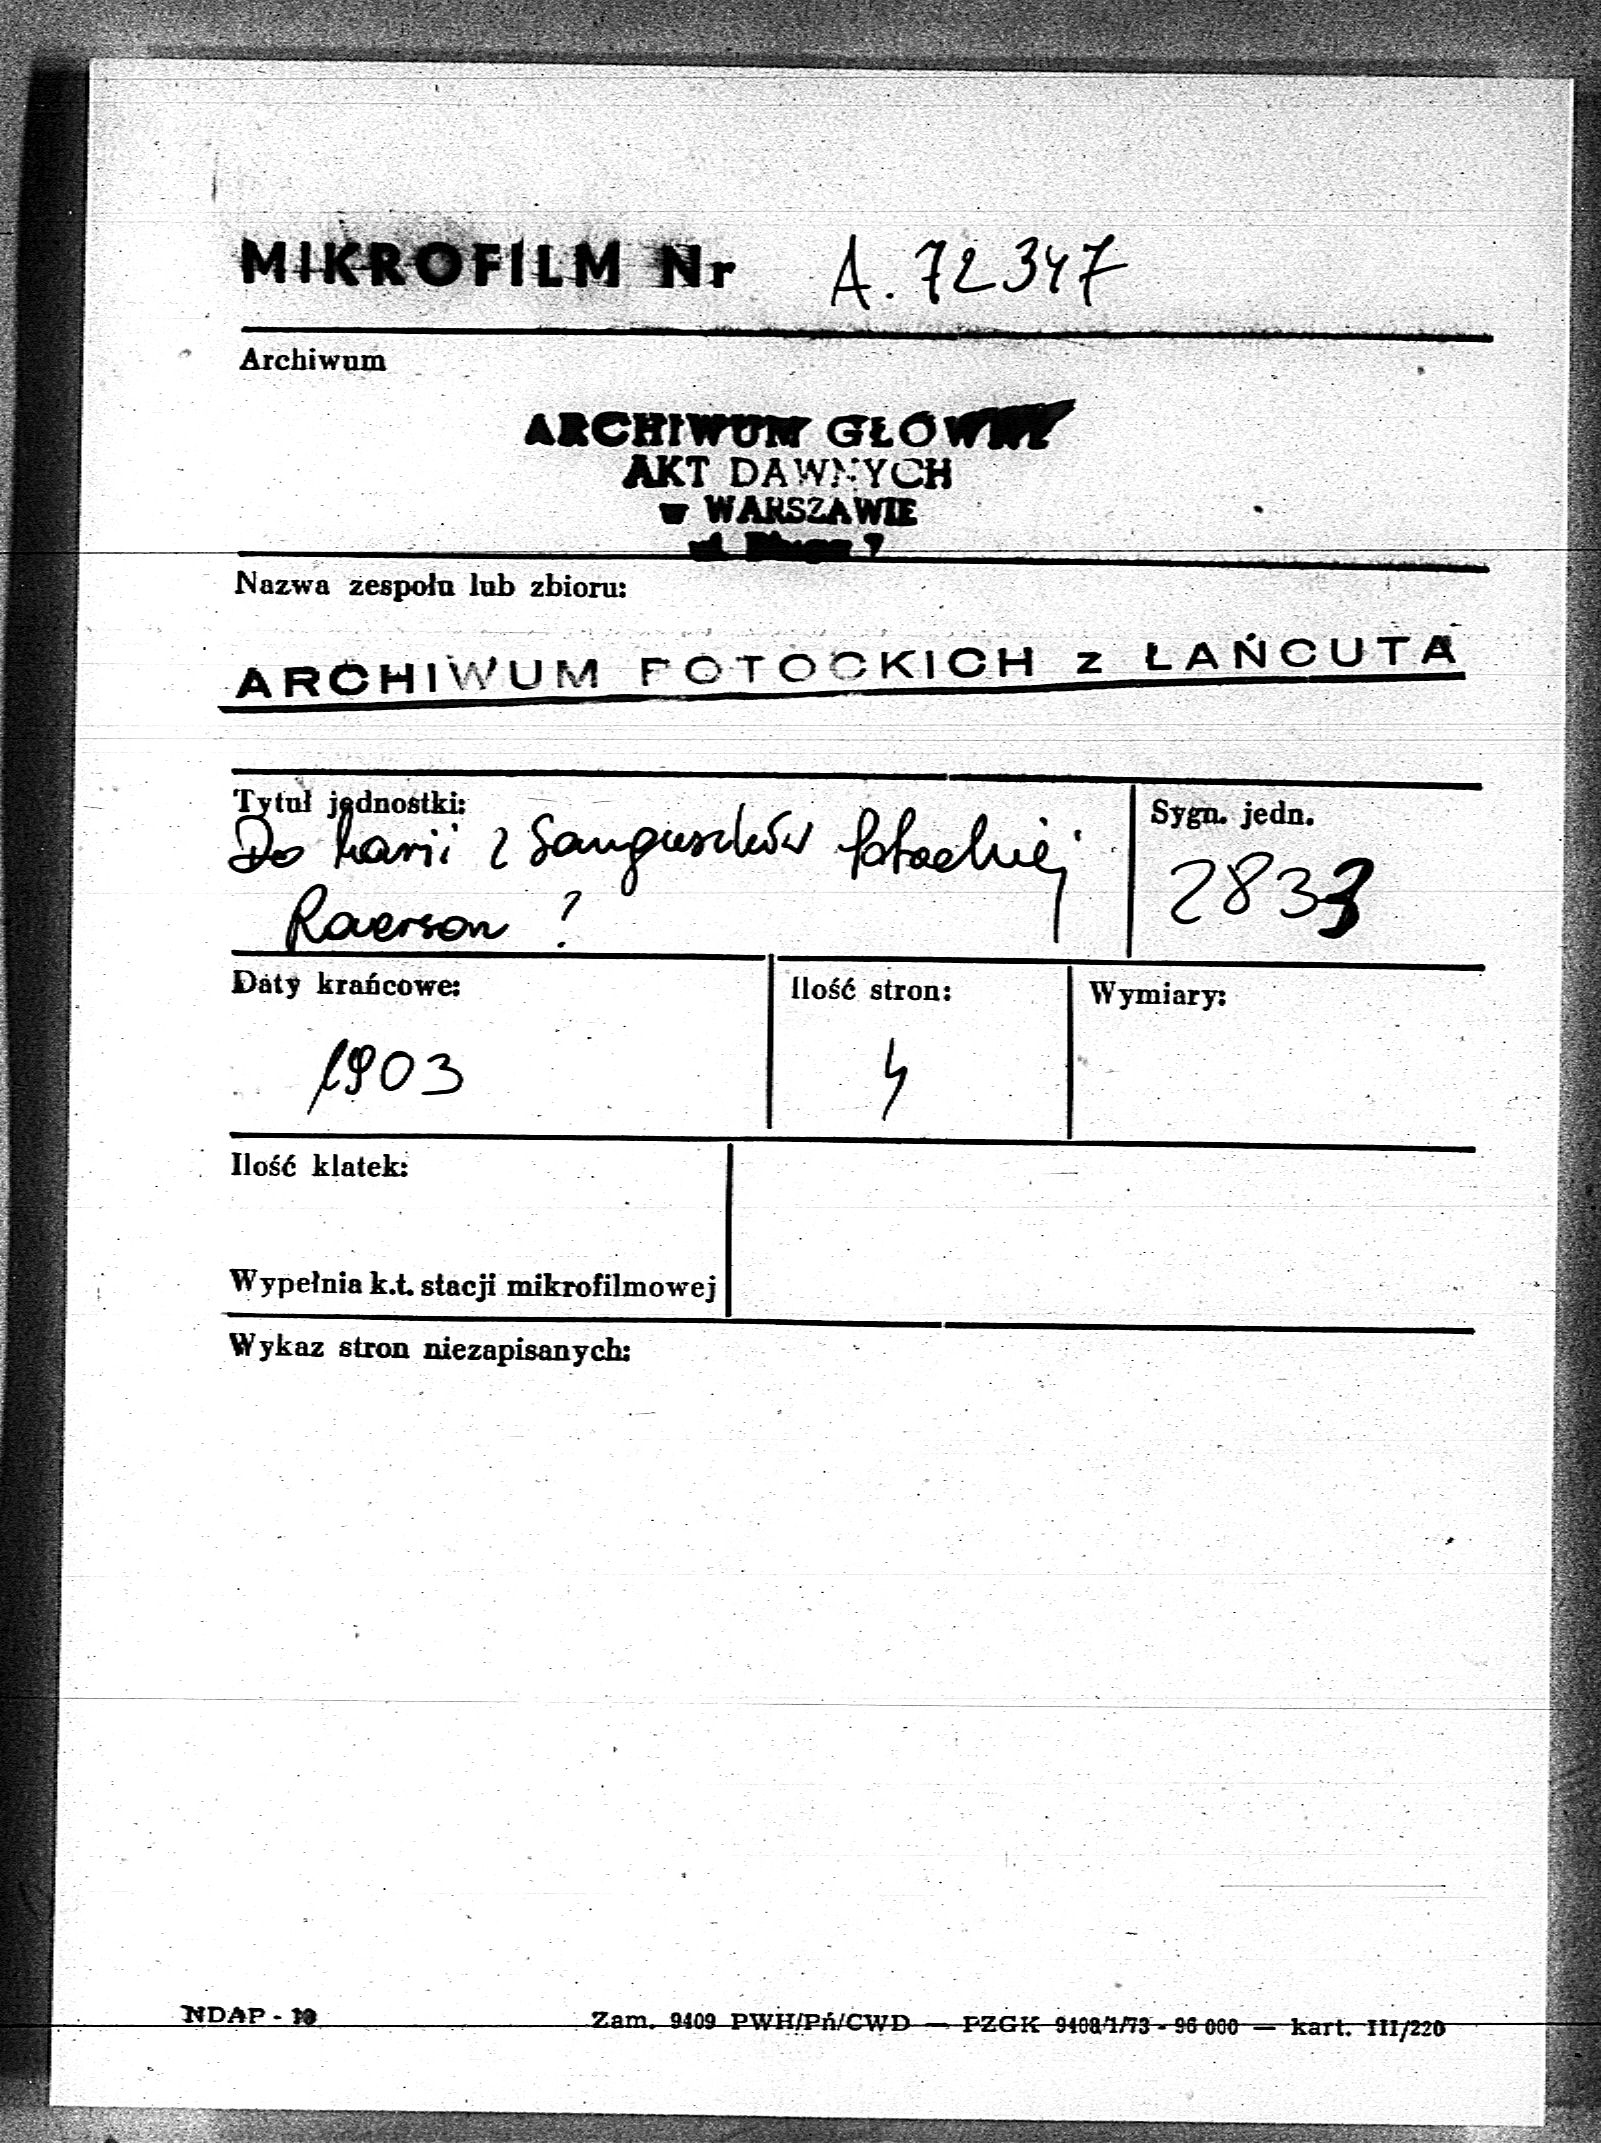 MIKROFILM Nr A. 72347
Archiwum
ARCHIWUM GŁÓWNE
AKT DAWNYCH
w WARSZAWIE
ul. Długa 7
Nazwa zespołu lub zbioru:
ARCHIWUM POTOCKICH z ŁAŃCUTA
Tytuł jednostki:
Do Marii z Sanguszków Potockiej
Raerson ?
Sygn. jedn.
2833
Daty krańcowe:
1903
Ilość stron:
4
Wymiary:
Ilość klatek:
Wypełnia k.t. stacji mikrofilmowej
Wykaz stron niezapisanych:
NDAP - 10
Zam. 9409 PWH/Pń/CWD — PZGK 9408/1/73 - 96 000 — kart. III/220